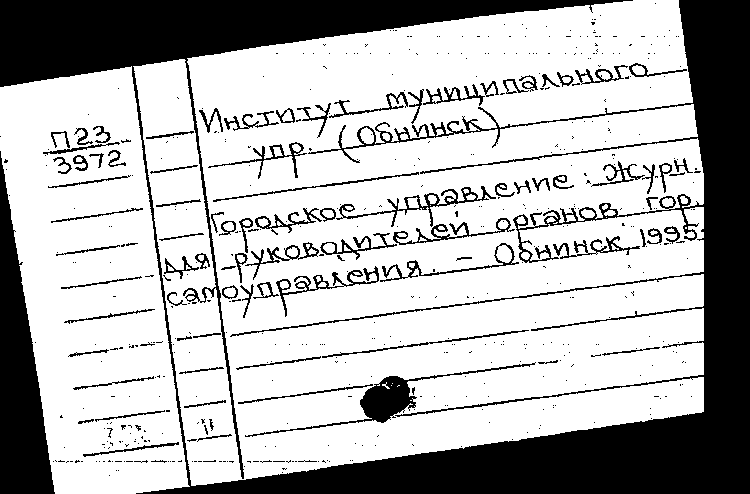 П23
3972
Институт муниципального
упр. (Обнинск)
Городское управление: Журн.
для руководителей органов гор.
самоуправления. – Обнинск, 1995-